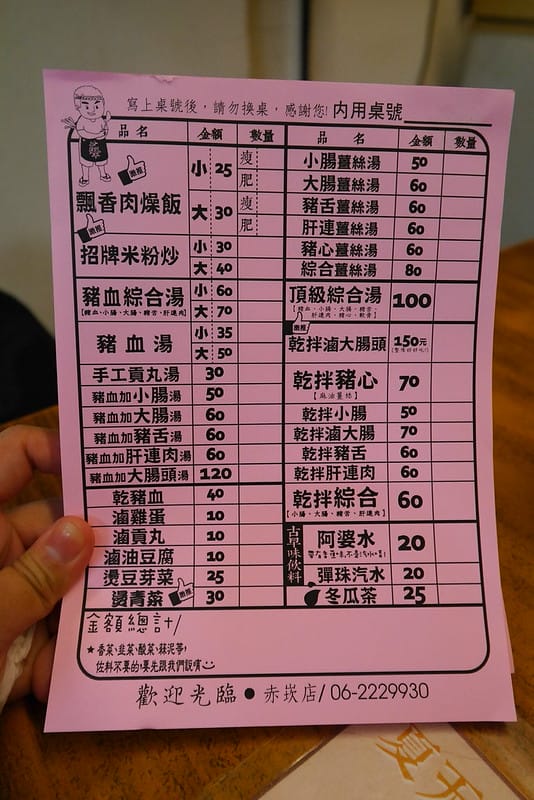 寫上桌號後，請勿換桌，感謝您! 內用桌號
品名 金額 數量
飄香肉燥飯 激推 小 25 瘦 肥
大 30 瘦 肥
招牌米粉炒 激推 小 30
大 40
豬血綜合湯 小 60
【豬血、小腸、大腸、豬舌、肝連肉】 大 70
豬血湯 小 35
大 50
手工貢丸湯 30
豬血加小腸湯 50
豬血加大腸湯 60
豬血加豬舌湯 60
豬血加肝連肉湯 60
豬血加大腸頭湯 120
乾豬血 40
滷雞蛋 10
滷貢丸 10
滷油豆腐 10
燙豆芽菜 25
燙青菜 激推 30
品名 金額 數量
小腸薑絲湯 50
大腸薑絲湯 60
豬舌薑絲湯 60
肝連薑絲湯 60
豬心薑絲湯 60
綜合薑絲湯 80
頂級綜合湯 100
【豬血、小腸、大腸、豬舌、
肝連肉、豬心、軟骨】
激推
乾拌滷大腸頭 150元
乾拌豬心 70
【麻油薑絲】
乾拌小腸 50
乾拌滷大腸 70
乾拌豬舌 60
乾拌肝連肉 60
乾拌綜合 60
【小腸、大腸、豬舌、肝連肉】
古早味飲料
阿婆水 20
彈珠汽水 20
冬瓜茶 25
金額總計/
★香菜、韭菜、酸菜、蒜泥等，
佐料不要的，要先跟我們說唷
歡迎光臨●赤崁店/06-2229930
夏天